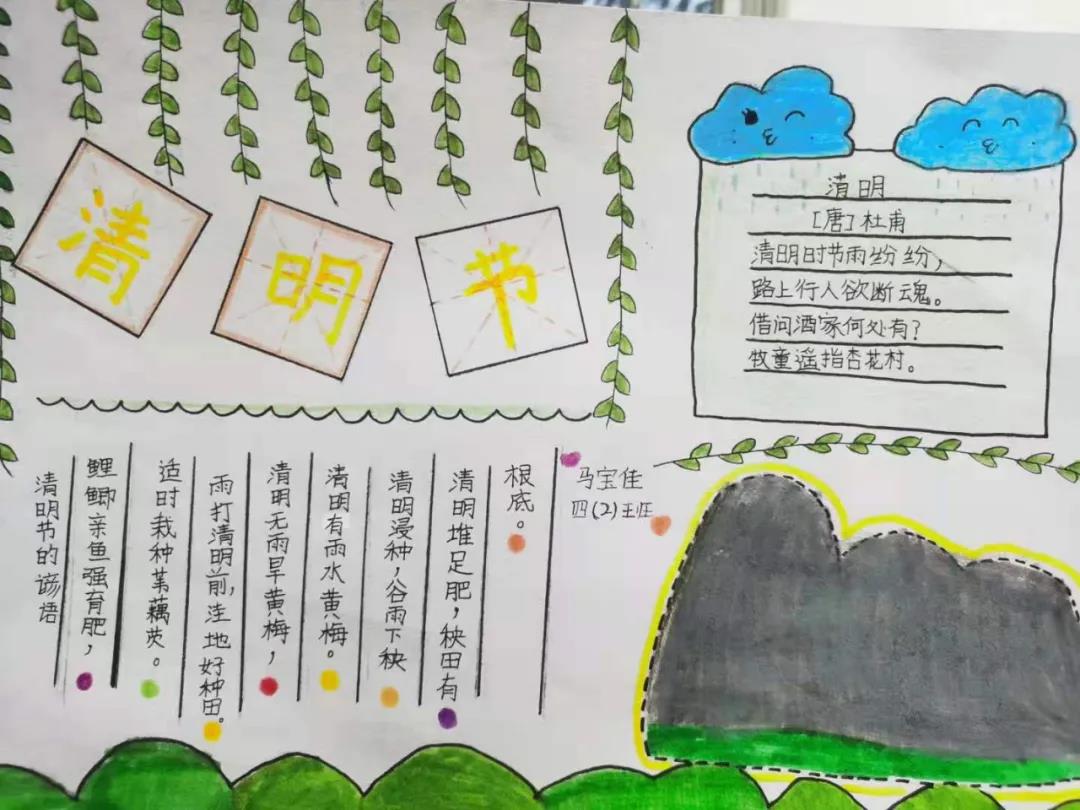 清明节
清明
[唐]杜甫
清明时节雨纷纷,
路上行人欲断魂。
借问酒家何处有?
牧童遥指杏花村。
清明节的谚语
鲤鲫亲鱼强育肥,
适时栽种苇藕芡。
雨打清明前,洼地好种田。
清明无雨旱黄梅,
清明有雨水黄梅。
清明浸种,谷雨下秧
清明堆足肥,秧田有
根底。
马宝佳
四(2)班